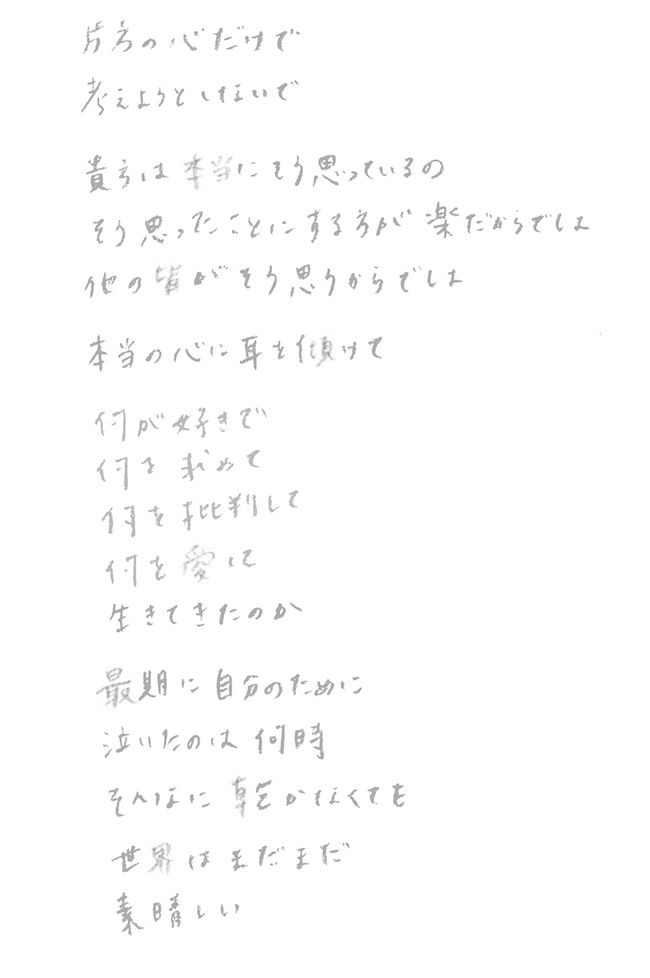 片方の心だけで
考えようとしないで
貴方は本当にそう思っているの
そう思ったことにする方が楽だからでしょ
他の皆がそう思うからでしょ
本当の心に耳を傾けて
何が好きで
何を求めて
何を批判して
何を愛して
生きてきたのか
最期に自分のために
泣いたのは何時
そんなに乾かなくても
世界はまだまだ
素晴しい